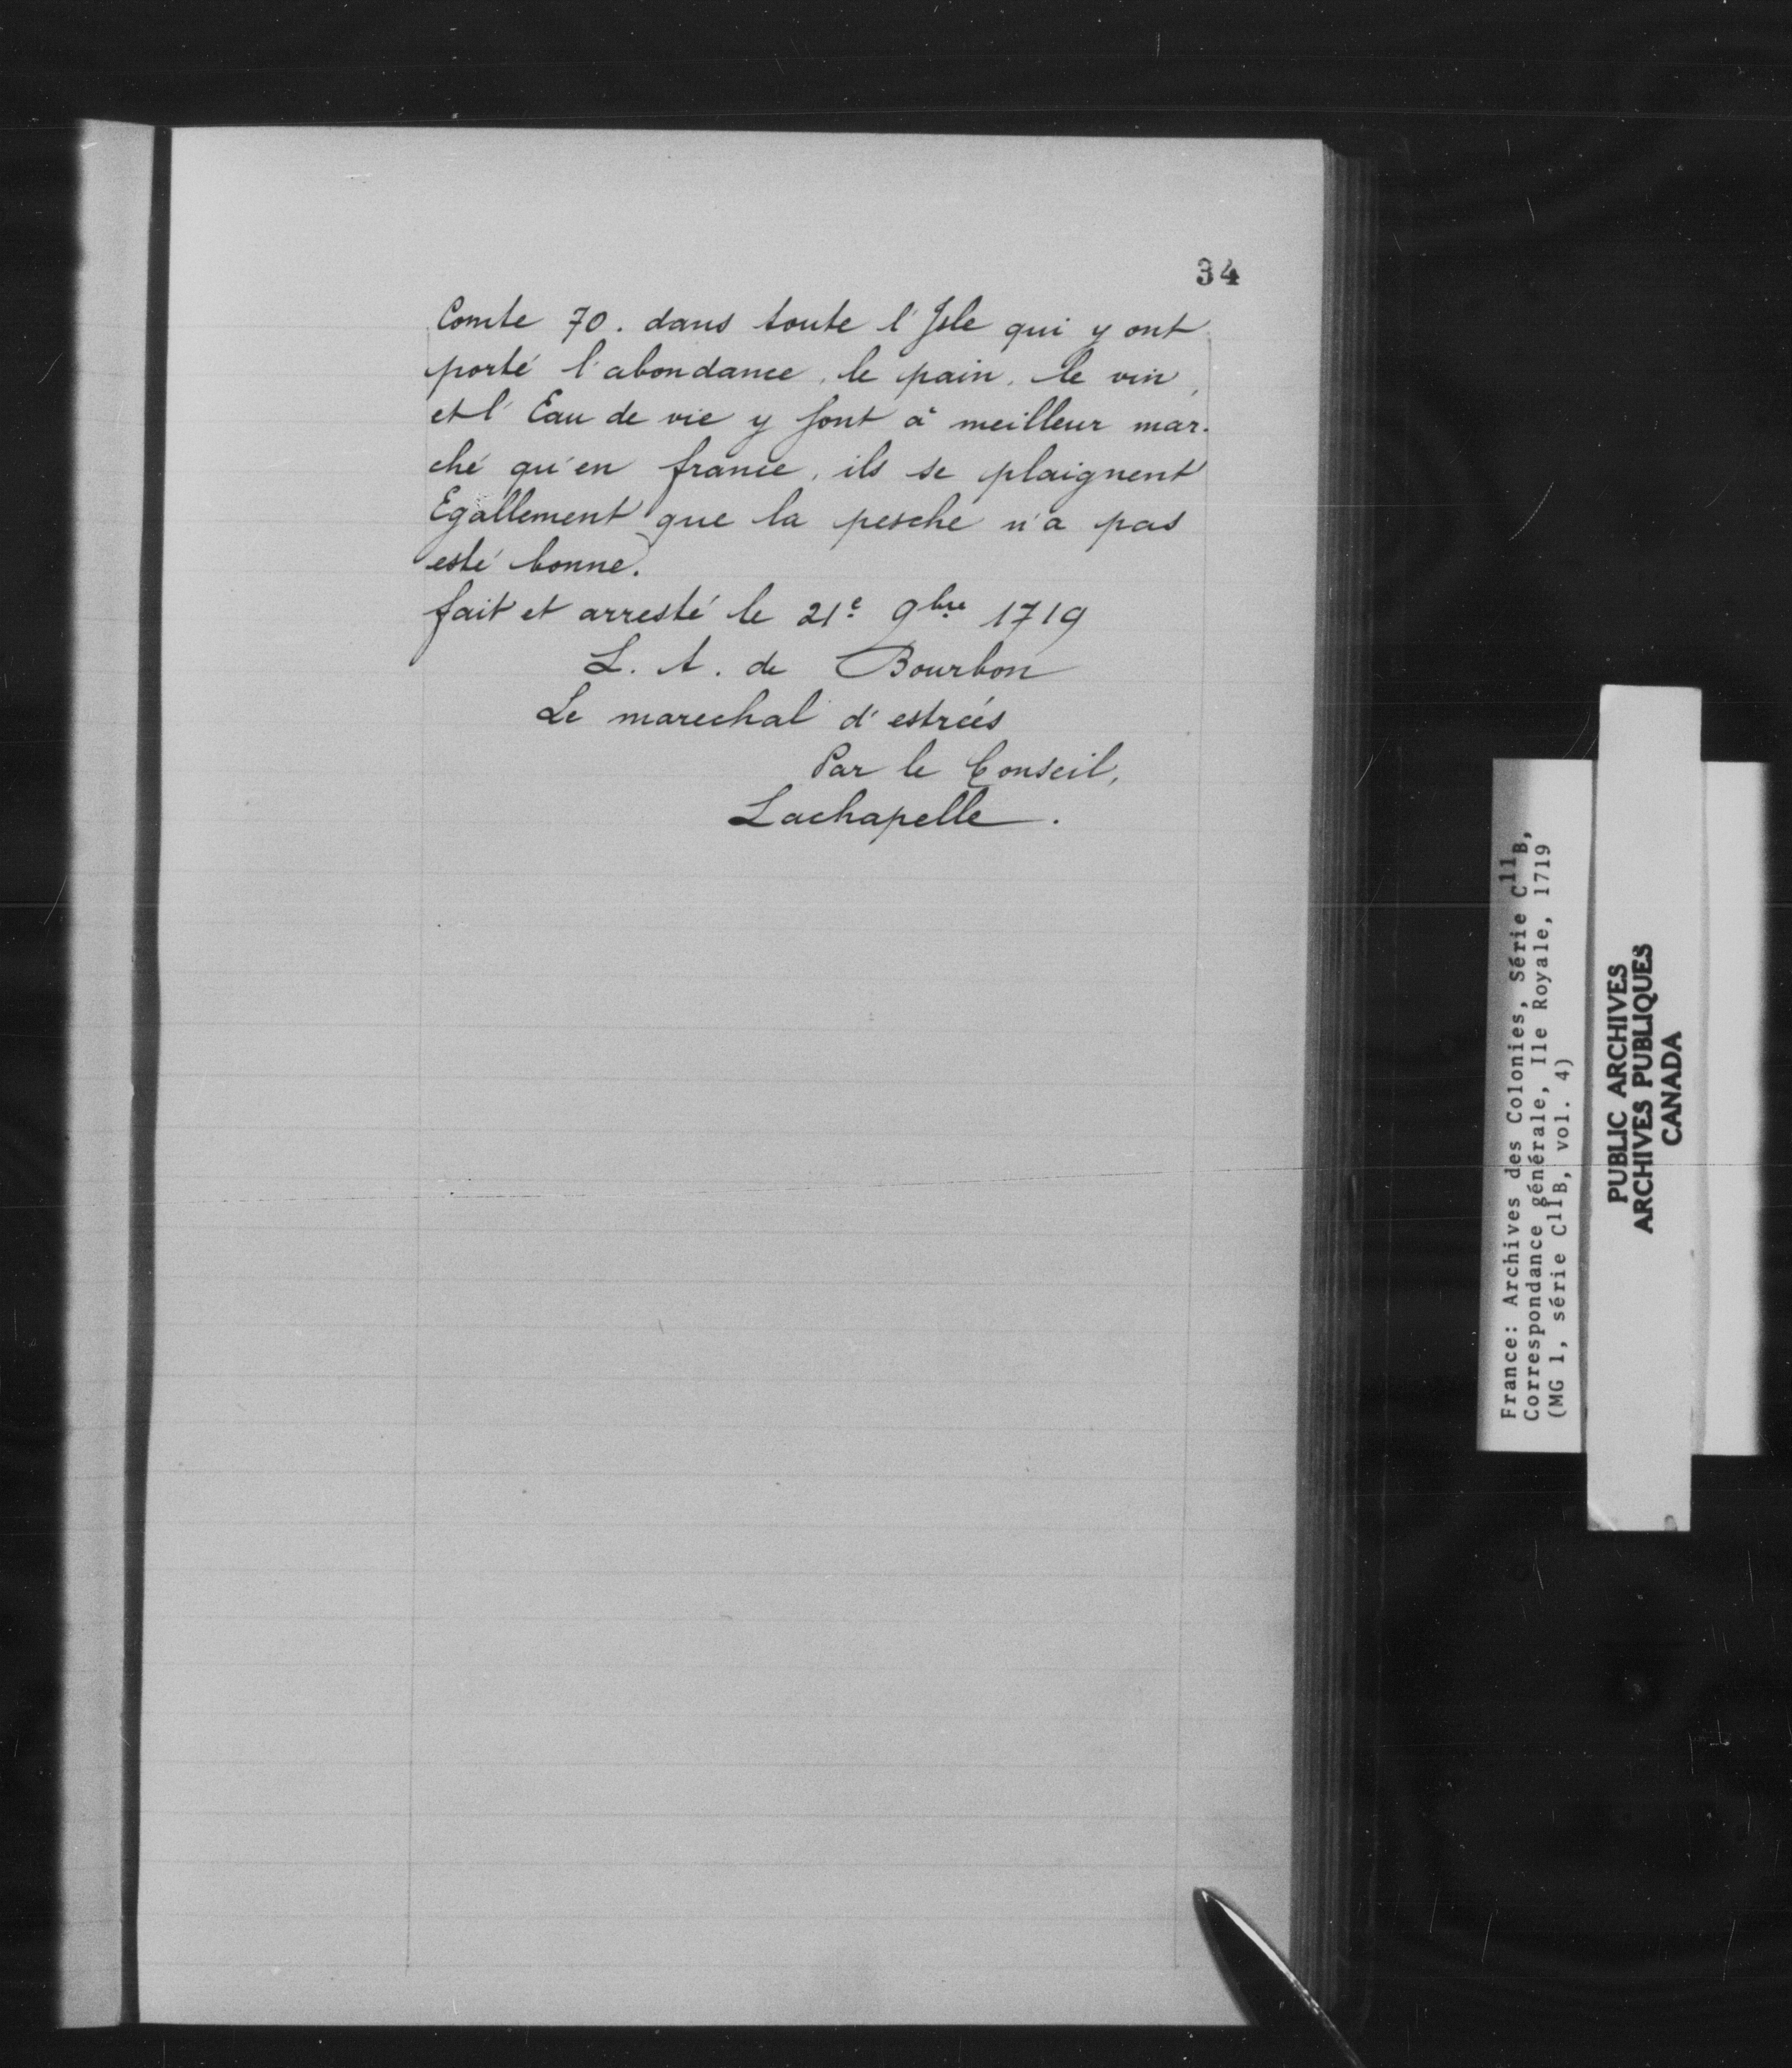 34
Comte 70. dans toute l'Isle qui y ont
porté l'abondance, le pain, le vin,
et l'Eau de vie y sont à meilleur mar-
ché qu'en france, ils se plaignent
Egallement que la pesche n'a pas
esté bonne.
fait et arresté le 21e 9bre 1719
L. A. de Bourbon
Le marechal d'estrées
Par le Conseil,
Lachapelle.
France: Archives des Colonies, Série C11B,
Correspondance générale, Ile Royale, 1719
(MG 1, série C11B, vol. 4)
PUBLIC ARCHIVES
ARCHIVES PUBLIQUES
CANADA